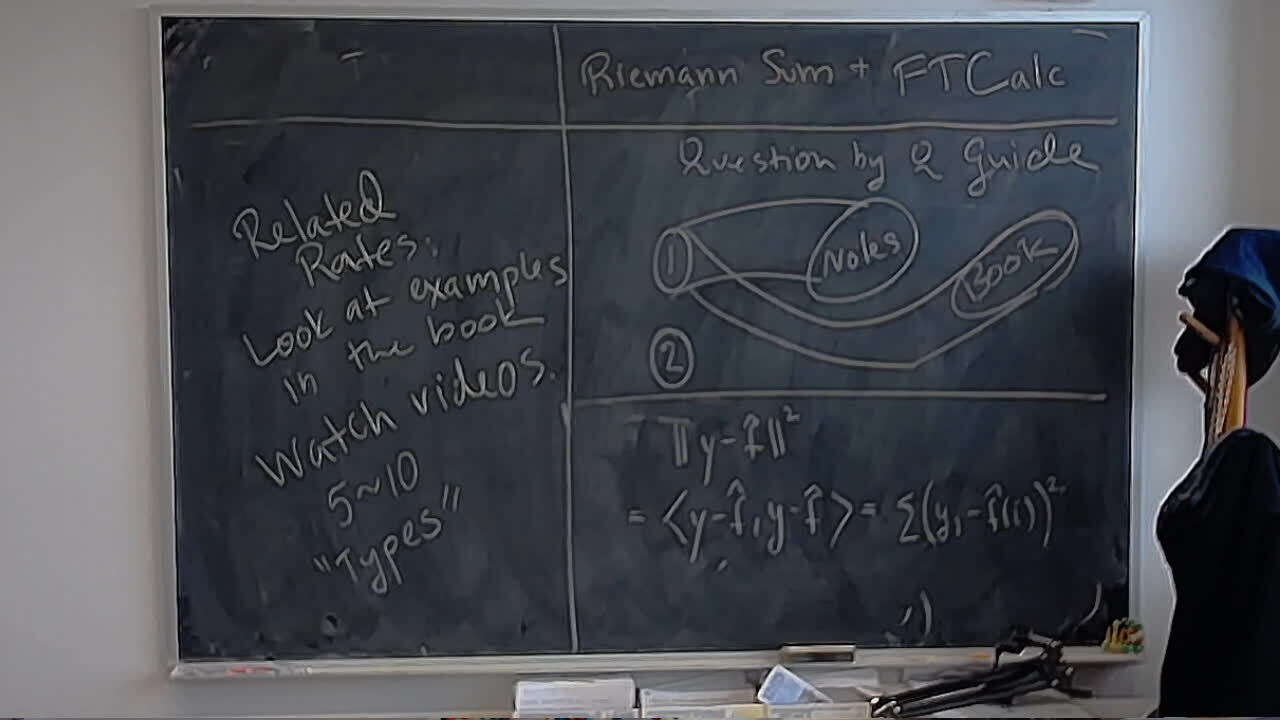 T
Related
Rates:
Look at examples
in the book
Watch videos.
5~10
"Types"
Riemann Sum + FTCalc
Question by Q Guide
① Notes Book
②
||y-f̂||²
= <y-f̂, y-f̂> = Σ(yᵢ-f̂(i))²